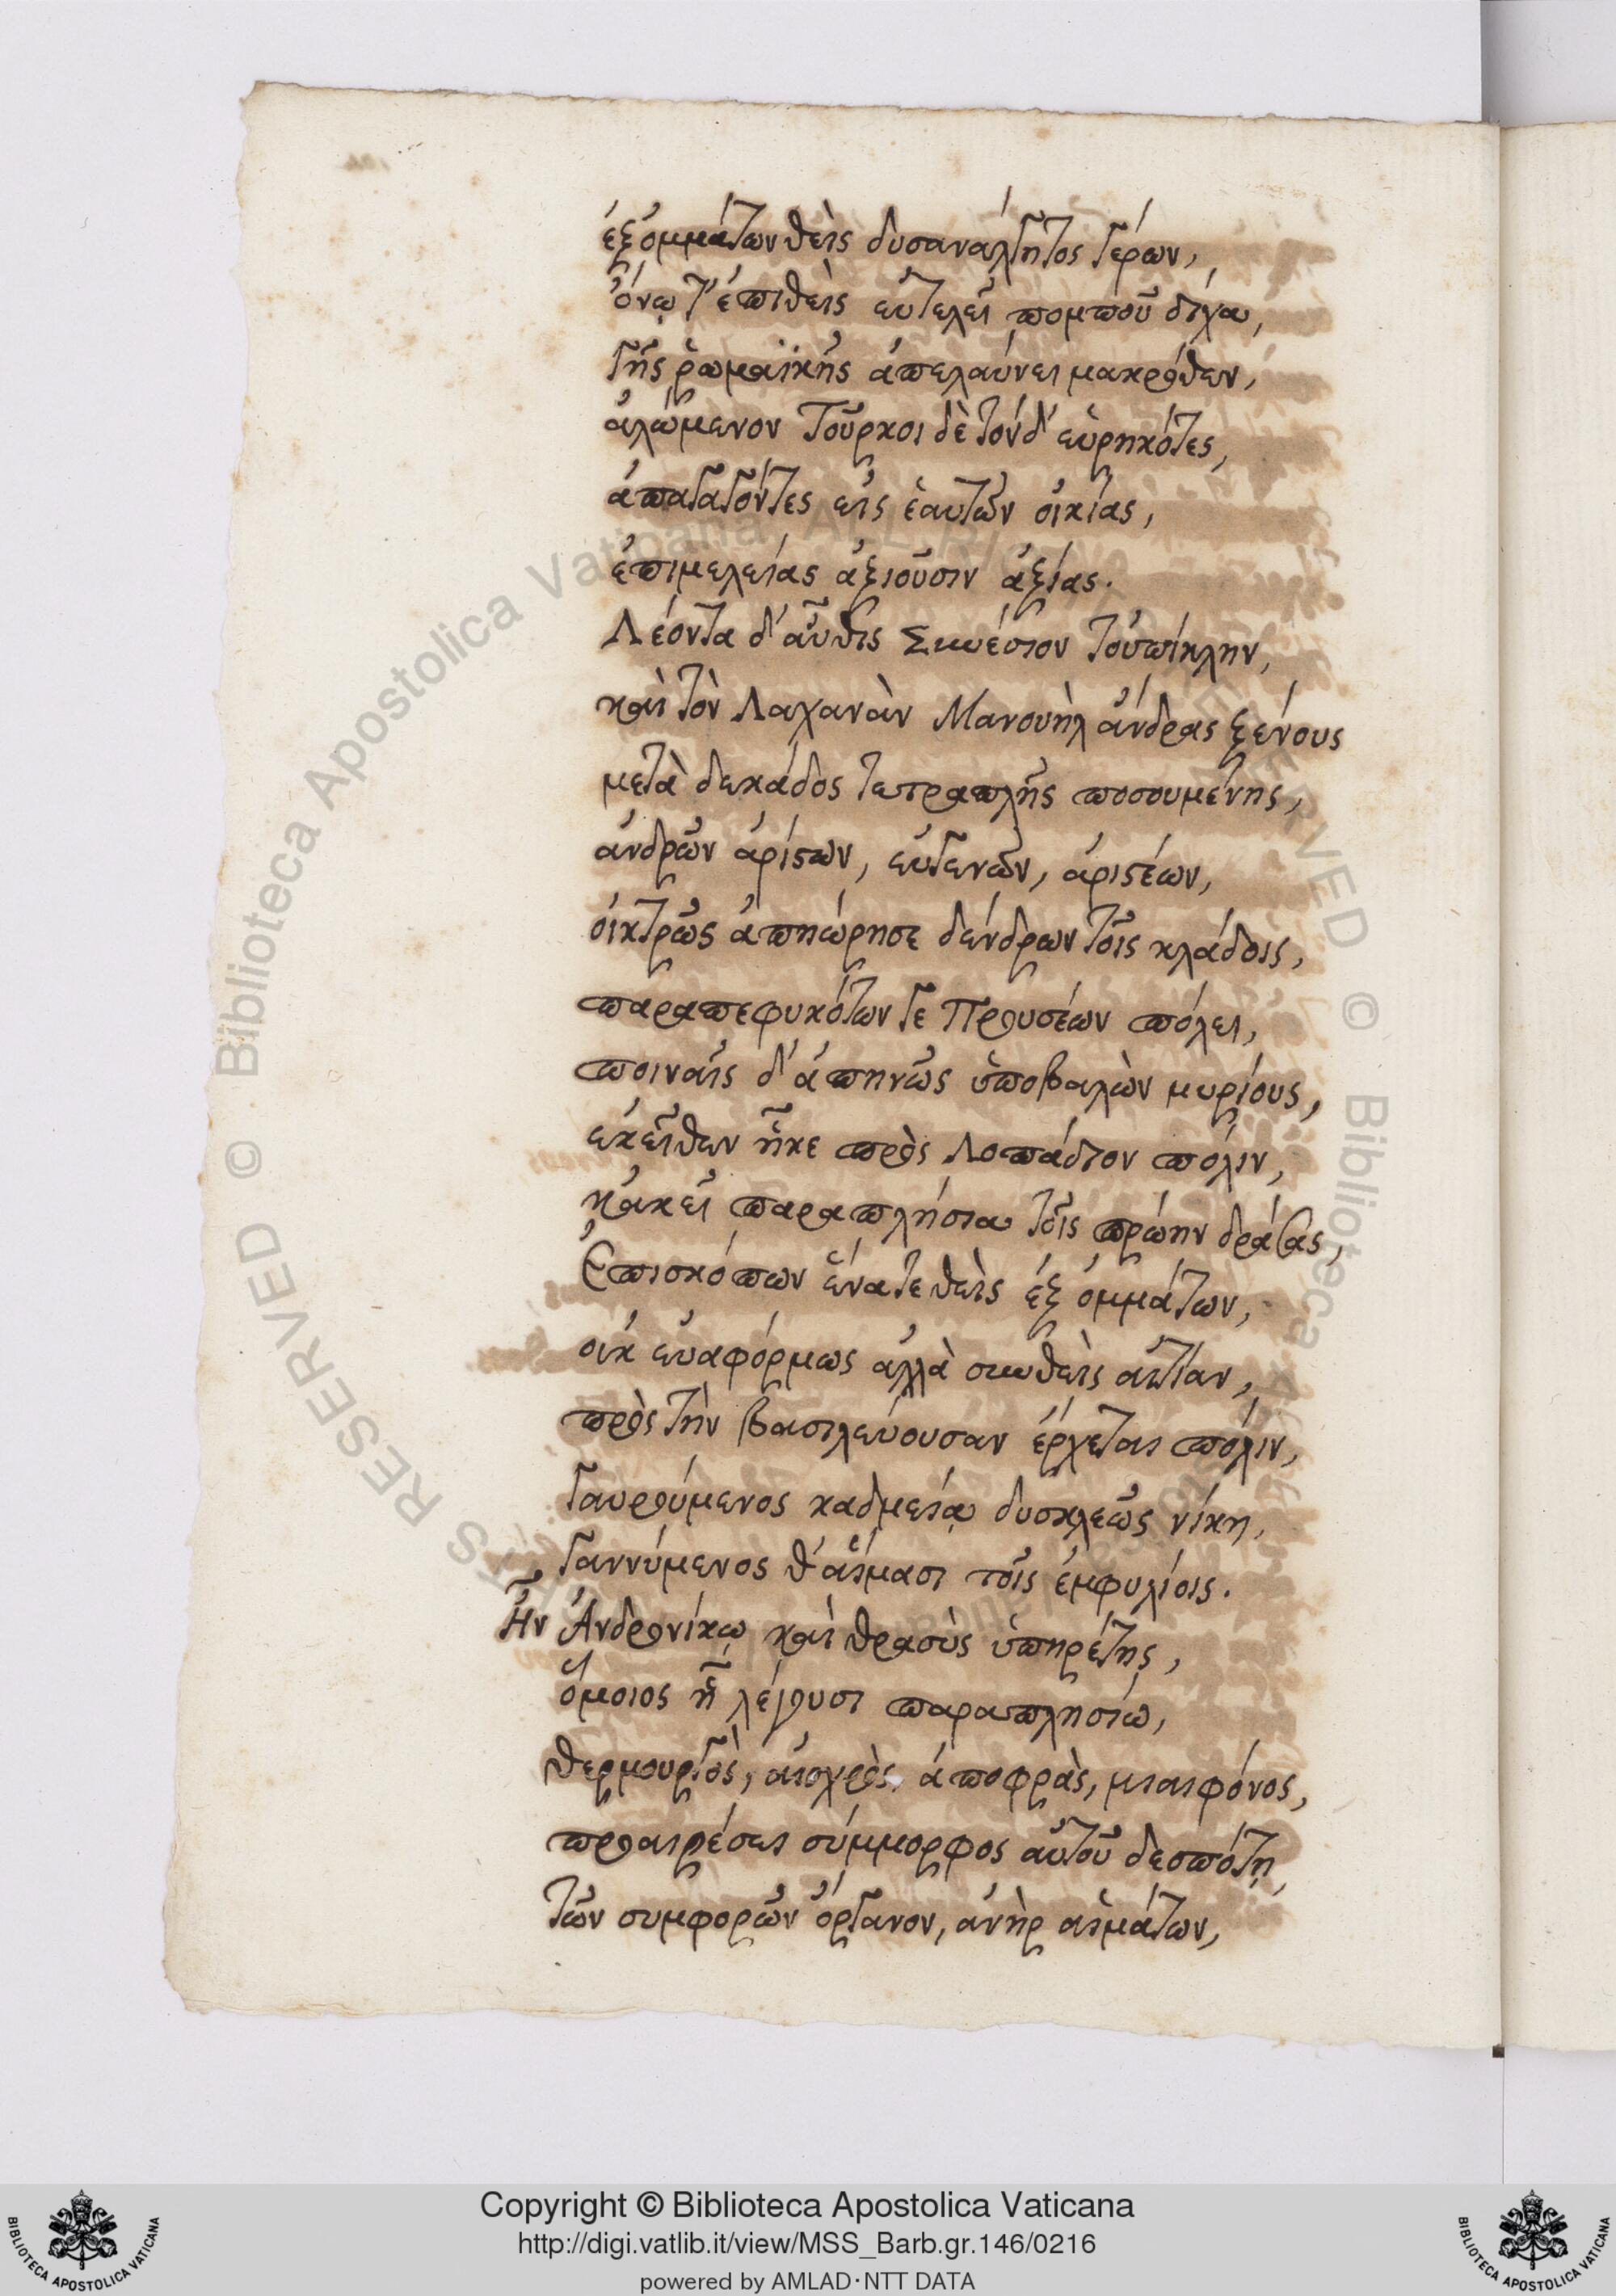 ἐξ ὀμμάτων θεὶς δυσανάλγητος γέρων,
ὄνῳ τ' ἐπιθεὶς εὐτελεῖ πομποῦ δίχα,
γῆς ῥωμαϊκῆς ἀπελαύνει μακρόθεν,
ἀλώμενον Τοῦρκοι δὲ τόνδ' εὑρηκότες,
ἀπαγαγόντες εἰς ἑαυτῶν οἰκίας,
ἐπιμελείας ἀξιοῦσιν ἀξίας.
Λέοντα δ' αὖθις Συνέσιον τοὐπίκλην,
καὶ τὸν Λαχανὰν Μανουὴλ ἄνδρας ξένους
μετὰ δεκάδος τετραπλῆς ποσουμένης,
ἀνδρῶν ἀρίστων, εὐγενῶν, ἀριστέων,
οἰκτρῶς ἀπῃώρησε δένδρων τοῖς κλάδοις,
παραπεφυκότων γε Προυσέων πόλει,
ποιναῖς δ' ἀπηνῶς ὑποβαλὼν μυρίους,
ἐκεῖθεν ἧκε πρὸς Λοπάδιον πόλιν,
κἀκεῖ παραπλήσια τοῖς πρώην δράσας,
Ἐπισκόπων ἕνα τε θεὶς ἐξ ὀμμάτων,
οὐκ εὐαφόρμως ἀλλὰ συνθεὶς αἰτίαν,
πρὸς τὴν βασιλεύουσαν ἔρχεται πόλιν,
γαυρούμενος καδμείᾳ δυσκλεῶς νίκῃ,
γαννύμενος θ' αἵμασι τοῖς ἐμφυλίοις.
Ἦν Ἀνδρονίκῳ καὶ θρασὺς ὑπηρέτης,
ὅμοιος ᾗ λέγουσι παραπλησίῳ,
θερμουργὸς, αἰσχρὸς, ἀποφρὰς, μιαιφόνος,
προαιρέσει σύμμορφος αὐτοῦ δεσπότῃ,
τῶν συμφορῶν ὄργανον, ἀνὴρ αἱμάτων,
© Biblioteca Apostolica Vaticana
Copyright © Biblioteca Apostolica Vaticana
http://digi.vatlib.it/view/MSS_Barb.gr.146/0216
powered by AMLAD·NTT DATA
BIBLIOTECA APOSTOLICA VATICANA
BIBLIOTECA APOSTOLICA VATICANA